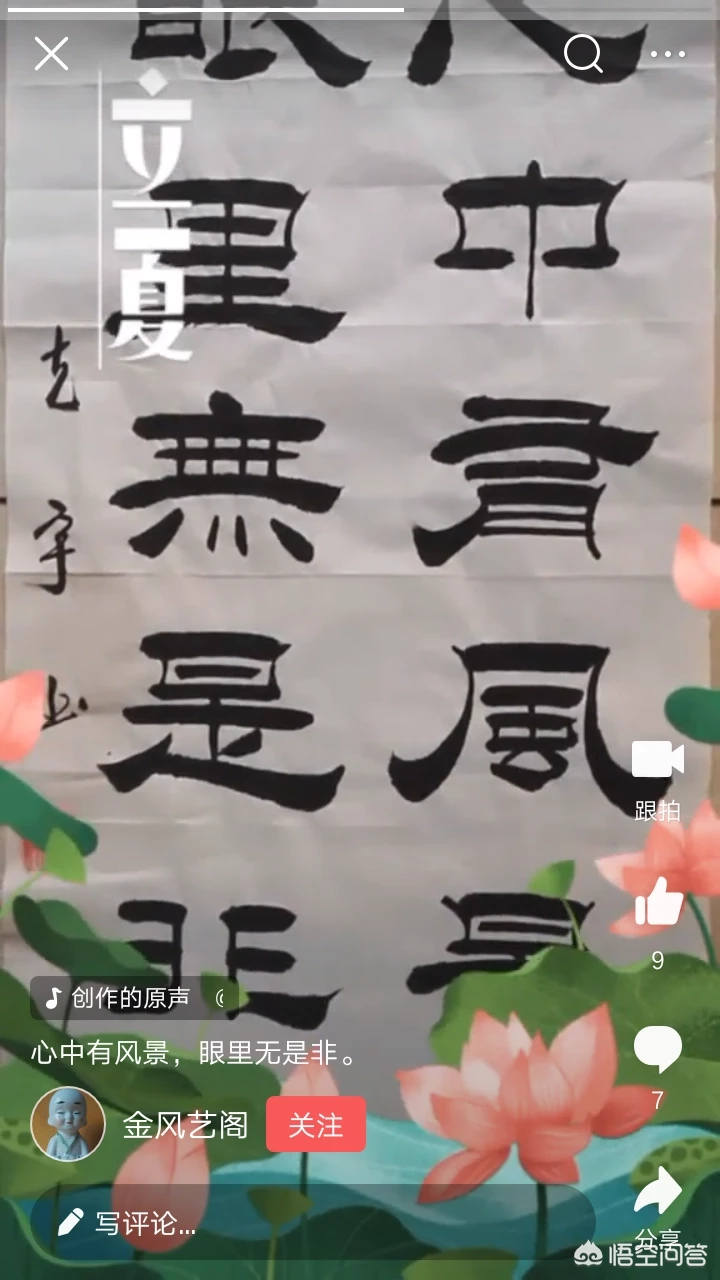 立夏
心中有風景
眼里無是非
克宇
跟拍
9
7
分享
创作的原声
心中有风景，眼里无是非。
金风艺阁
关注
写评论...
悟空问答